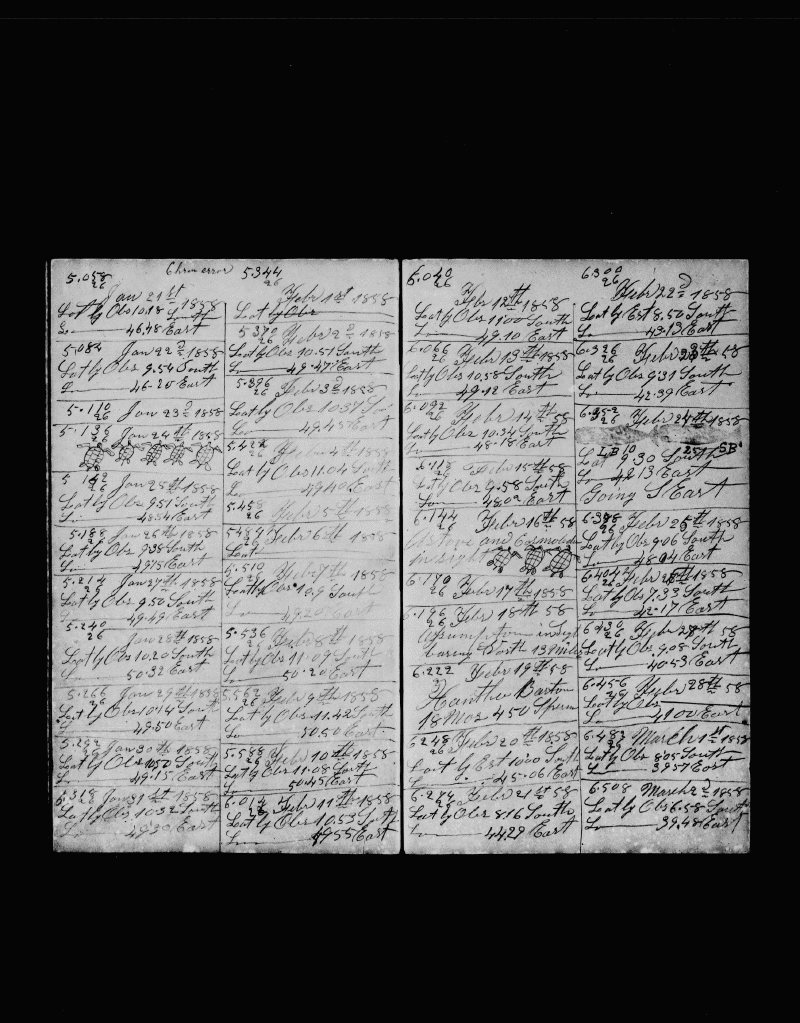 5.058
26
Chron error
Jan 21st 1858
Lat by Obs 10.18 South
Lo 46.48 East
5.084
26
Jan 22d 1858
Lat by Obs 9.54 South
Lo 46-20 East
5.110
26
Jan 23d 1858
5.136
26
Jan 24th 1858
5.162
26
Jan 25th 1858
Lat by Obs 9.51 South
Lo 48.54 East
5.188
26
Jan 26th 1858
Lat by Obs 9.38 South
Lo 49.15 East
5.214
26
Jan 27th 1858
Lat by Obs 9.50 South
Lo 49.49 East
5.240
26
Jan 28th 1858
Lat by Obs 10.20 South
Lo 50.32 East
5.266
26
Jan 29th 1858
Lat by Obs 10.14 South
Lo 49.50 East
5.292
26
Jan 30th 1858
Lat by Obs 10.50 South
Lo 49.15 East
5.318
26
Jan 31st 1858
Lat by Obs 10.32 South
Lo 49.30 East
5.344
26
Febr 1st 1858
Lat by Obs
5.370
26
Febr 2d 1858
Lat by Obs 10.51 South
Lo 49.47 East
5.396
26
Febr 3d 1858
Lat by Obs 10.37 So
Lo 49.45 East
5.422
26
Febr 4th 1858
Lat by Obs 11.04 South
Lo 49.40 East
5.458
26
Febr 5th 1858
5484
26
Febr 6th 1858
Lat
5.510
26
Febr 7th 1858
Lat by Obs 10.9 South
Lo 49.20 East
5.536
26
Febr 8th 1858
Lat by Obs 11.09 South
Lo 50.20 East
5.562
26
Febr 9th 1858
Lat by Obs 11.42 South
Lo 50.50 East
5.588
26
Febr 10th 1858
Lat by Obs 11.08 South
Lo 50.45 East
6.014
26
Febr 11th 1858
Lat by Obs 10.53 South
Lo 49.55 East
6.040
26
Febr 12th 1858
Lat by Obs 11.00 South
Lo 49.10 East
6.066
26
Febr 13th 1858
Lat by Obs 10.58 South
Lo 49.12 East
6.092
26
Febr 14th 58
Lat by Obs 10.34 South
Lo 48.18 East
6.118
26
Febr 15th 58
Lat by Obs 9.58 South
Lo 48.02 East
6.144
26
Febr 16th 58
Astove and Cosmoledo
in sight
6.170
26
Febr 17th 1858
6.196
26
Febr 18th 58
Assumption in sight
bearing North 13 Miles
6.222
Febr 19th 58
Xanthe Barton
18 Mos 450 Sperm
6.248
26
Febr 20th 1858
Lat by Est 10.00 South
Lo 45.06 East
6.274
26
Febr 21st 58
Lat by Obs 8.16 South
Lo 44.29 East
6.300
26
Febr 22d 1858
Lat by Est 8.50 South
Lo 43.13 East
6.326
26
Febr 23th 58
Lat by Obs 9.31 South
Lo 42.39 East
6.352
26
Febr 24th 1858
Lat 9 30 South
Lo 42 13 East
Going S East
6.378
26
Febr 25th 1858
Lat by Obs 9.06 South
Lo 48.04 East
6.404
26
Febr 26th 1858
Lat by Obs 7.33 South
Lo 42.17 East
6.430
26
Febr 27th 58
Lat by Obs 9.08 South
Lo 40.53 East
6.456
26
Febr 28th 58
Lat by Obs
Lo 41.00 East
6.482
26
March 1st 1858
Lat by Obs 8.05 South
Lo 39.57 East
6.508
March 2d 1858
Lat by Obs 6.58 South
Lo 39.48 East